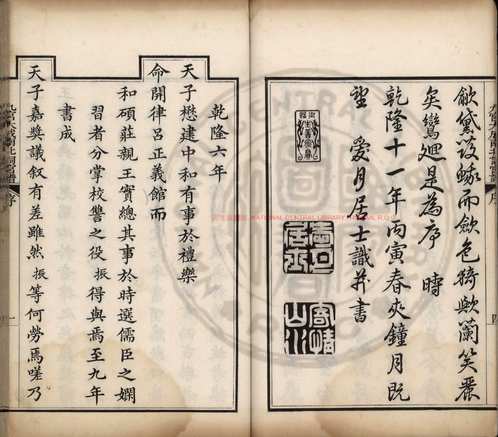 歛黛凝蛾而歛色猗歟蘭笑麗
矣鸞𢌞是為序　時
乾隆十一年丙寅春夾鐘月既
望　愛月居士識并書
愛月居士
寄情山水
乾隆六年
天子懋建中和有事於禮樂
命開律呂正義館而
和碩莊親王實總其事於時選儒臣之嫻
習者分掌校讐之役振得與焉至九年
書成
天子嘉奬議叙有差雖然振等何勞焉嗟乃
序
NATIONAL CENTRAL LIBRARY